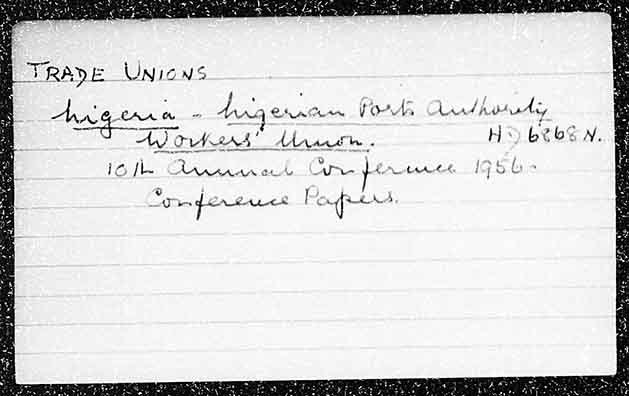 TRADE UNIONS
Nigeria - Nigerian Ports Authority
Workers' Union. HD 6868 N.
10th Annual Conference 1956.
Conference Papers.